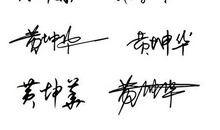 黄坤华 黄坤华
黄坤华 黄坤华